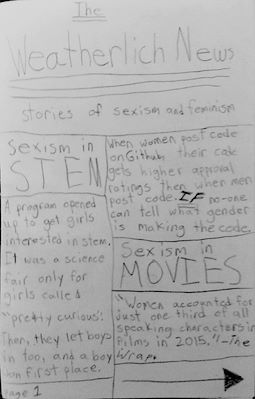 The
Weatherlich News
stories of sexism and feminism
Sexism in
STEM
A program opened
up to get girls
interested in stem.
It was a science
fair only for
girls called
"pretty curious".
Then, they let boys
in too, and a boy
won first place.
Page 1
When women post code
on Github, their code
gets higher approval
ratings then when men
post code. IF no-one
can tell what gender
is making the code.
Sexism in
MOVIES
"Women accounted for
just one third of all
speaking characters in
films in 2015."-The
Wrap.